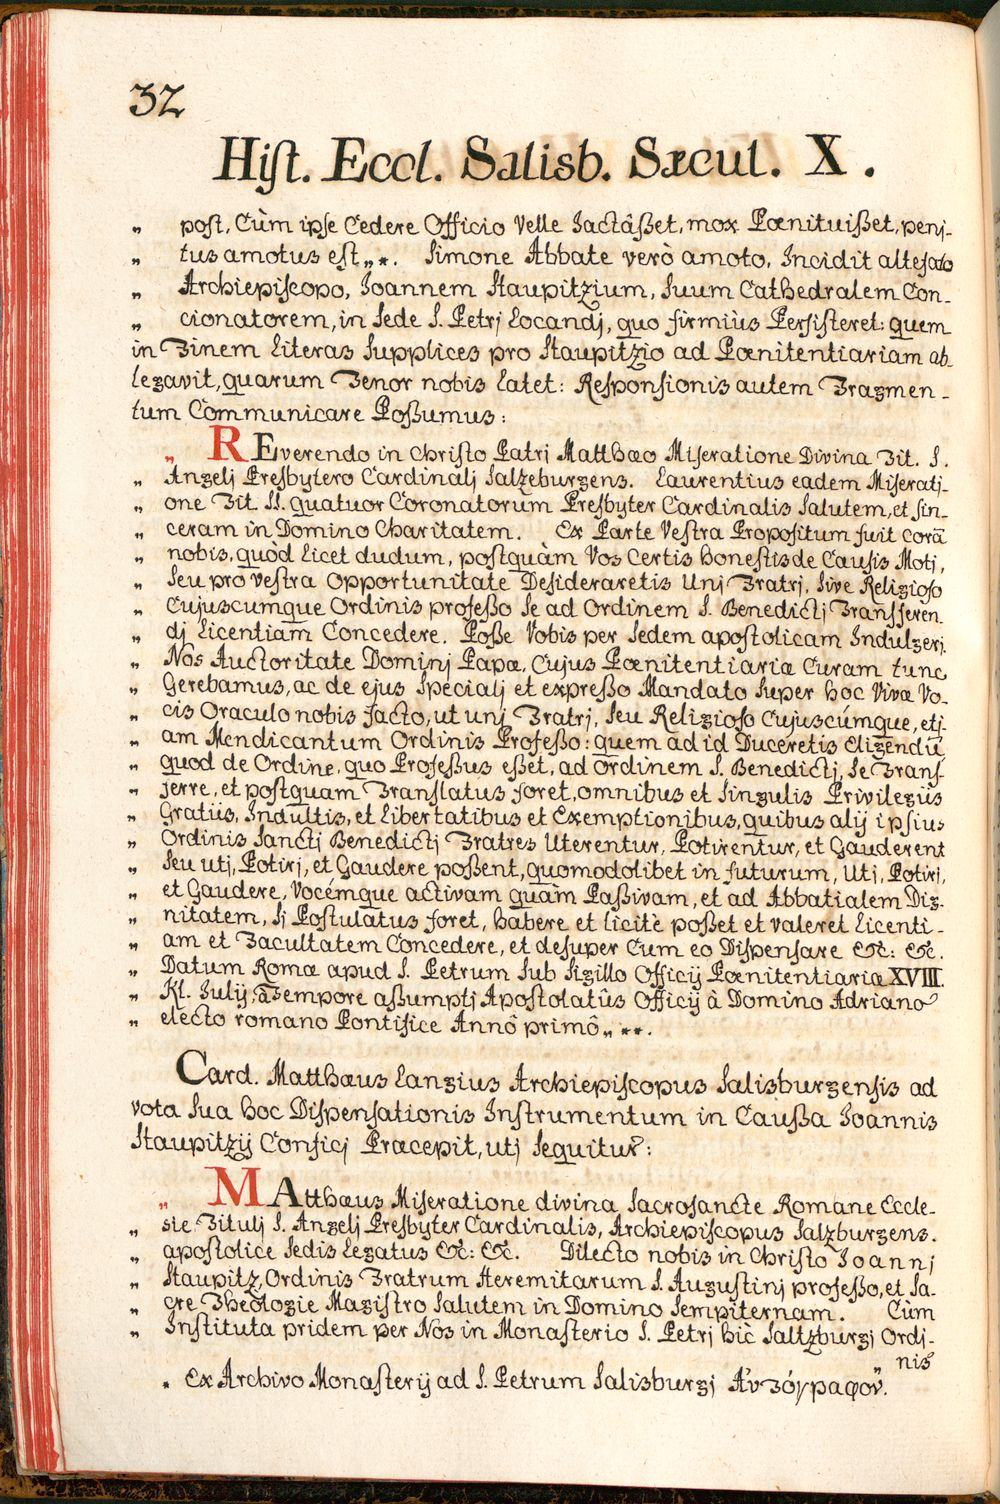 32
Hiſt. Eccl. Salisb. Sæcul. X.
„ poſt, Cùm ipſe Cedere Officio Velle Jactâßet, mox Pœnituißet, penj-
„ tus amotus eſt„*. Simone Abbate verò amoto, Incidit alteſato
„ Archiepiſcopo, Joannem Staupitzium, Suum Cathedralem Con-
„ cionatorem, in Sede S. Petrj Locandj, quo firmiùs Perſiſteret: quem
in Finem Literas Supplices pro Staupitzio ad Pœnitentiariam ab-
legavit, quarum Tenor nobis Latet: Reſponſionis autem Fragmen-
tum Communicare Poßumus:
„ REverendo in Chriſto Patri Matthæo Miſeratione Divina Tit. S.
„ Angelj Presbytero Cardinalj Salzeburgens. Laurentius eadem Miſeratj-
„ one Tit. SS. quatuor Coronatorum Presbyter Cardinalis Salutem, et ſin-
„ ceram in Domino Charitatem. Ex Parte Veſtra Propoſitum fuit corã
„ nobis, quòd Licet dudum, poſtquàm Vos Certis honeſtisde Cauſis Moti,
„ Seu pro veſtra Opportunitate Deſideraretis Unj Fratrj, Sive Religioſo
„ Cujuscumque Ordinis profeßo Se ad Ordinem S. Benedictj Tranſferen-
„ dj Licentiam Concedere. Poße Vobis per Sedem apoſtolicam Indulgerj.
„ Nos Auctoritate Dominj Papæ, Cujus Pœnitentiariæ Curam tunc
„ Gerebamus, ac de ejus Specialj et expreßo Mandato Super hoc Vivæ Vo-
„ cis Oraculo nobis facto, ut unj Fratrj, Seu Religioſo Cujuscúmque, etj-
„ am Mendicantum Ordinis Profeßo: quem ad id Duceretis Eligendũ
„ quod de Ordine, quo Profeßus eßet, ad Ordinem S. Benedictj, Se Tranſ-
„ ferre, et poſtquam Tranſlatus foret, omnibus et Singulis Privilegiis
„ Gratiis, Indultis, et Libertatibus et Exemptionibus, quibus alij ipſius
„ Ordinis Sanctj Benedictj Fratres Uterentur, Potirentur, et Gauderent
„ Seu utj, Potirj, et Gaudere poßent, quomodolibet in futurum, Utj, Potirj,
„ et Gaudere, Vocémque activam quàm Paßivam, et ad Abbatialem Dig-
„ nitatem, Sj Poſtulatus foret, habere et licitè poßet et valeret Licenti-
„ am et Facultatem Concedere, et deſuper Cum eo Diſpenſare &c: &c.
„ Datum Romæ apud S. Petrum Sub Sigillo Officij Pœnitentiariæ XVIII.
„ Kl. Julij, â Tempore aßumptj Apoſtolatûs Officij â Domino Adriano
„ electo romano Pontifice Annô primô„**.
Card. Matthæus Langius Archiepiſcopus Salisburgenſis ad
vota Sua hoc Diſpenſationis Inſtrumentum in Caußa Joannis
Staupitzij Conficj Præcepit, utj Sequitur:
„ MAtthæus Miſeratione divina Sacroſancte Romane Eccle-
„ sie Titulj S. Angelj Presbyter Cardinalis, Archiepiſcopus Salzburgens.
„ apoſtolice Sedis Legatus &c: &c. Dilecto nobis in Chriſto Joannj
„ Staupitz, Ordinis Fratrum Heremitarum S. Auguſtinj profeßo, et Sa-
„ cre Theologie Magiſtro Salutem in Domino Sempiternam. Cùm
„ Inſtituta pridem per Nos in Monaſterio S. Petrj hìc Saltzburgj Ordj-
„ nis
* Ex Archivo Monaſterij ad S. Petrum Salisburgj